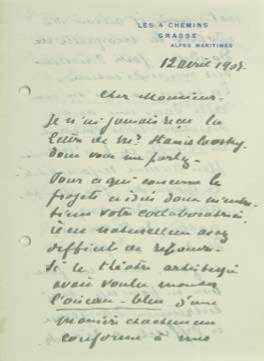 LES 4 CHEMINS
GRASSE
ALPES MARITIMES
12 avril 190
Cher Monsieur -
Je n'ai jamais reçu la
lettre de Mr. Stanislawsky
dont vous me parlez -
Pour ce qui concerne le
projet
votre collaboratrice,
naturellement assez
difficile de
Si le théâtre artistique
avait voulu monter
l'oiseau - bleu d'une
manière
conforme à